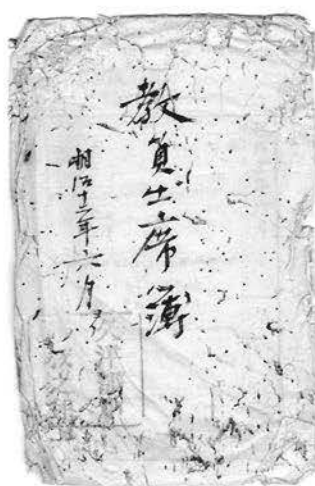 教員出席簿
明治十二年六月ヨリ